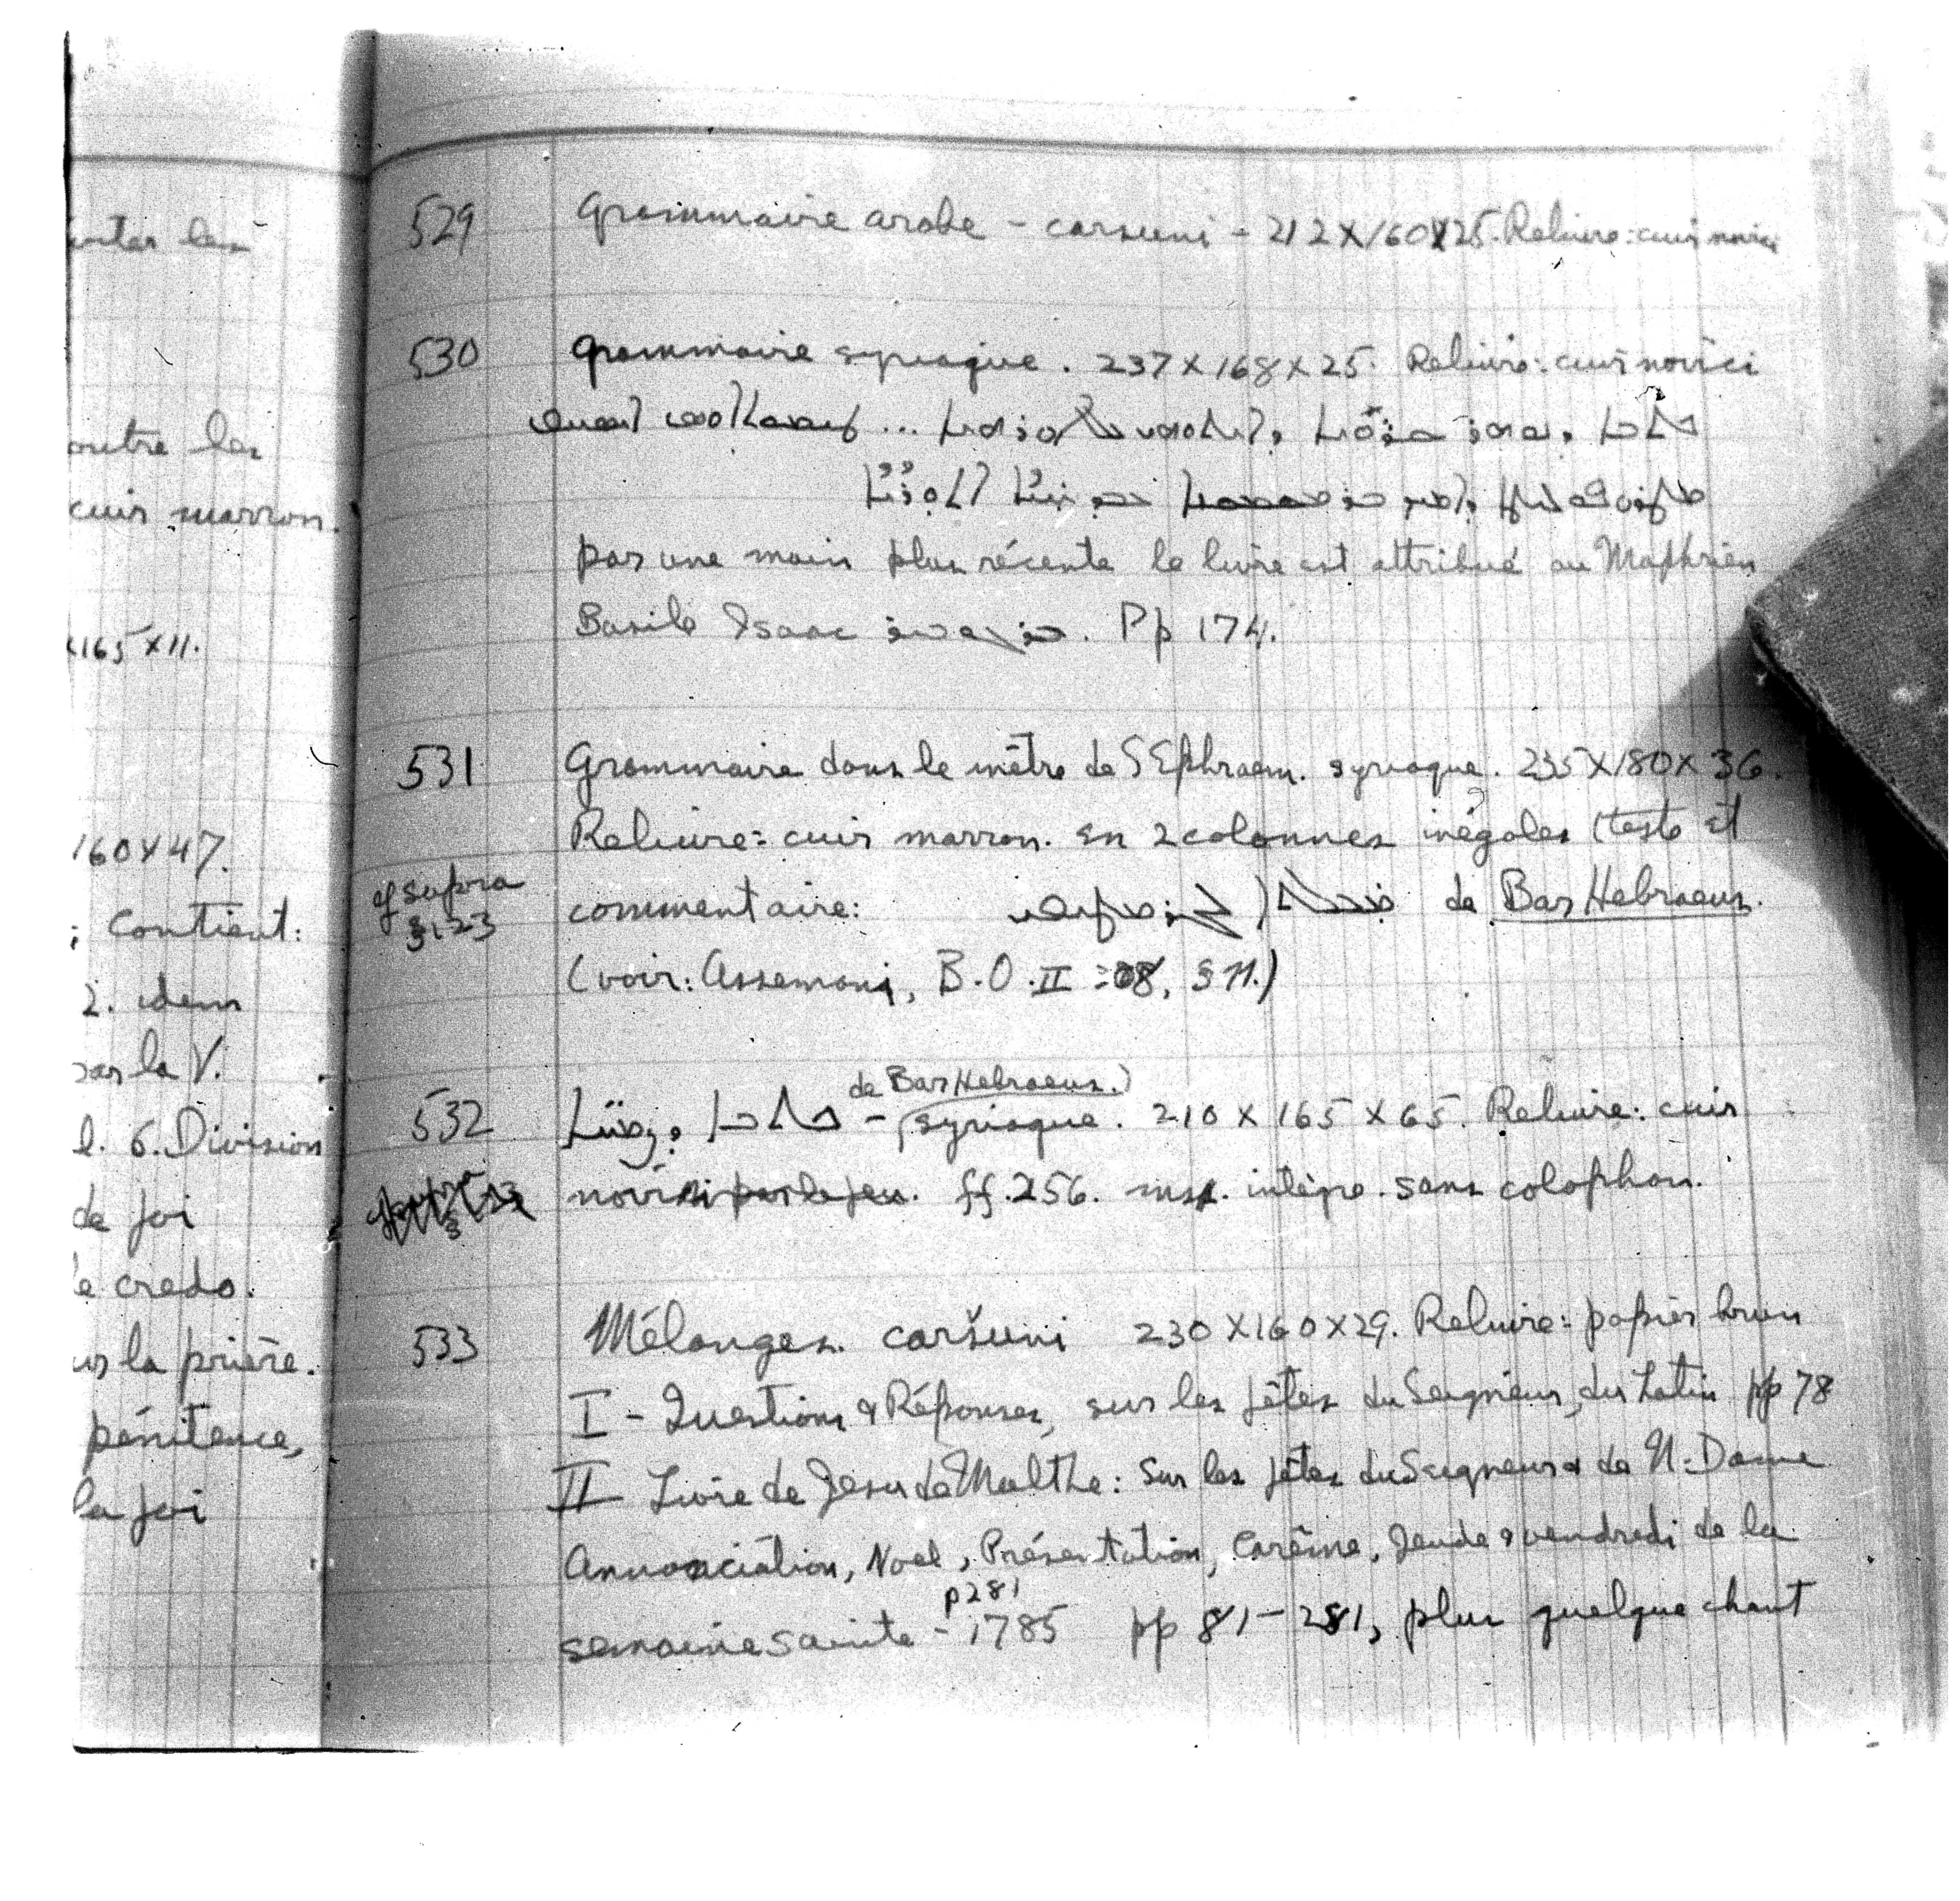 enter les
outre les
cuir marron.
165 X 11.
160 X 47.
; contient:
2. idem
par la V.
l. 6. Division
de foi
le credo.
ur la prière.
pénitence,
la foi
529 Grammaire arabe - carsuni - 212 X 160 X 25. Reliure: cuir noirci
530 Grammaire syriaque. 237 X 168 X 25. Reliure: cuir noirci
ܟܬܒܐ
par une main plus récente le livre est attribué au Maphrien
Basile Isaac. Pp 174.
531 Grammaire dans le mètre de S Ephraem. syriaque. 235 X 180 X 36.
Reliure: cuir marron. En 2 colonnes inégales (texte et
cf supra § 123 commentaire: ܓܪܡܛܝܩܝ de Bar Hebraeus.
(voir: Assemani, B.O. II 308, § 11.)
de Bar Hebraeus.)
532 ܟܬܒܐ ܕܨܡܚܐ - syriaque. 210 X 165 X 65. Reliure: cuir
noirci par le feu. ff. 256. ms. intègre. sans colophon.
533 Mélanges. caršuni 230 X 160 X 29. Reliure: papier brun
I - Questions & Réponses, sur les fêtes du Seigneur, du Latin pp 78
II Livre de Jesu de Malthe: Sur les fêtes du Seigneur & de N. Dame
Annonciation, Noel, Présentation, Carême, Jeudi & vendredi de la
p 281
semaine sainte - 1785 pp 81 - 281, plus quelque chant